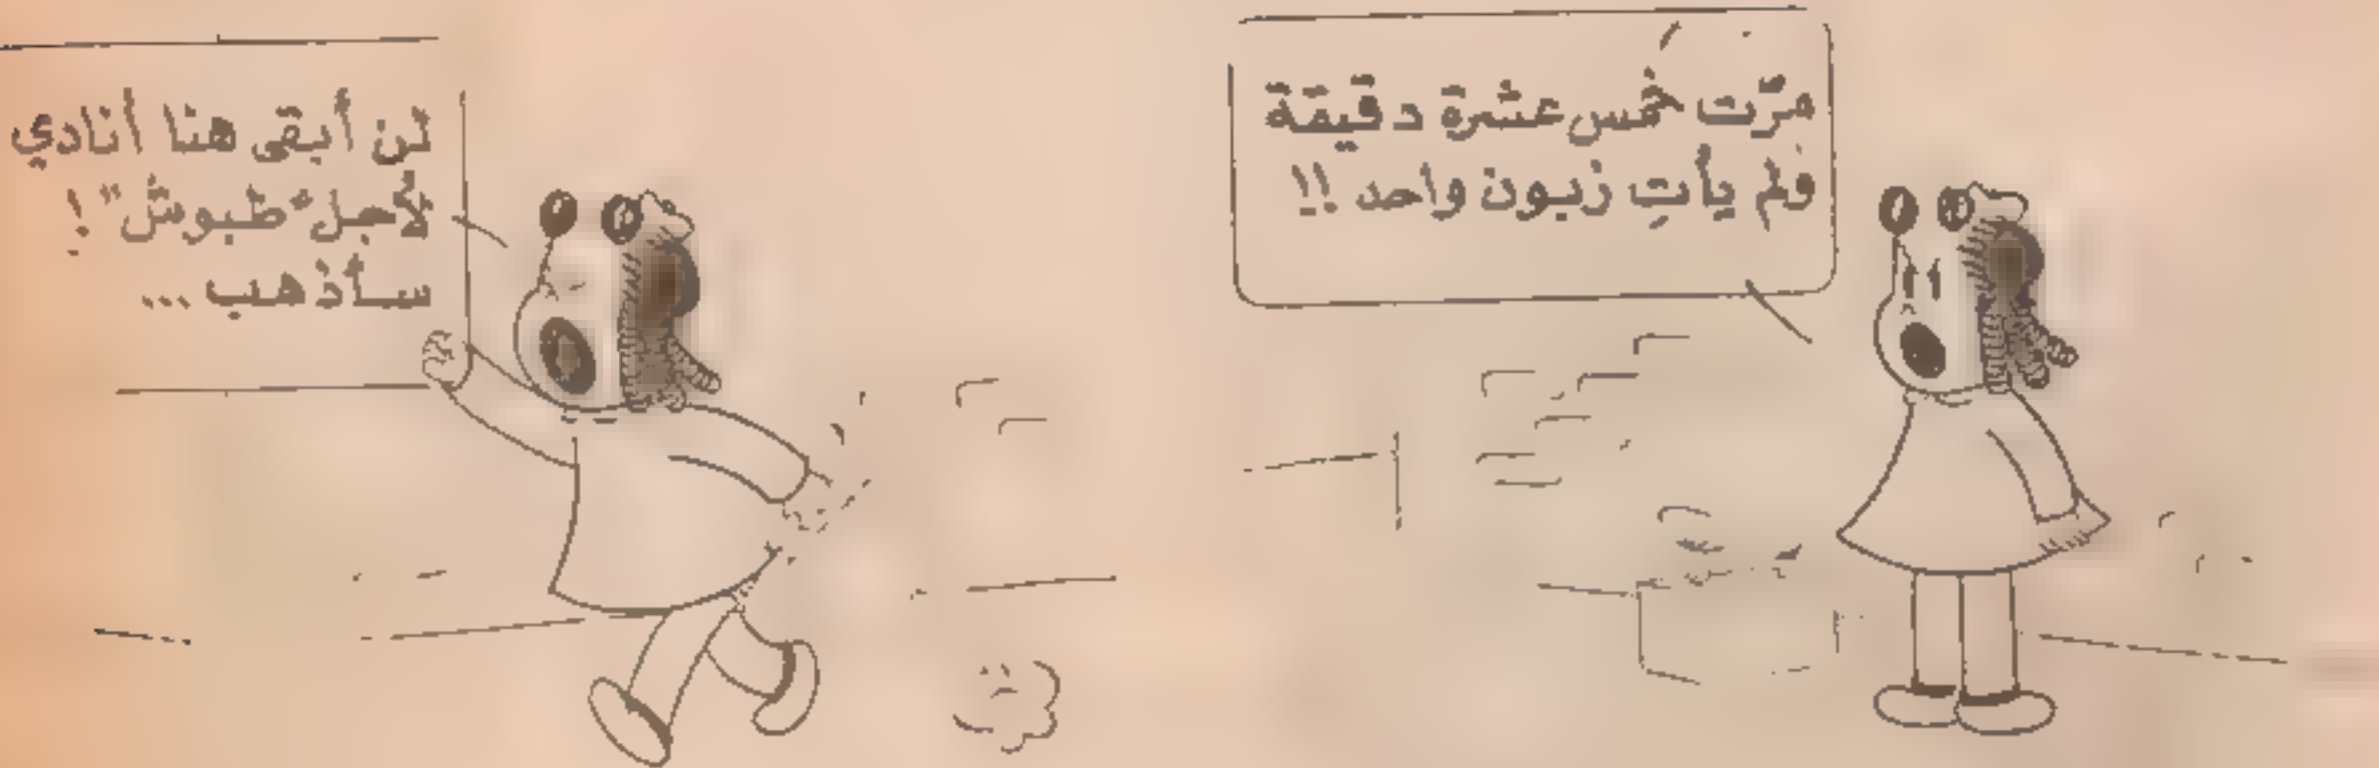 مرّت خمس عشرة دقيقة
ولم يأتِ زبون واحد !!
لن أبقى هنا أنادي
لأجل "طبوش" !
سأذهب ...